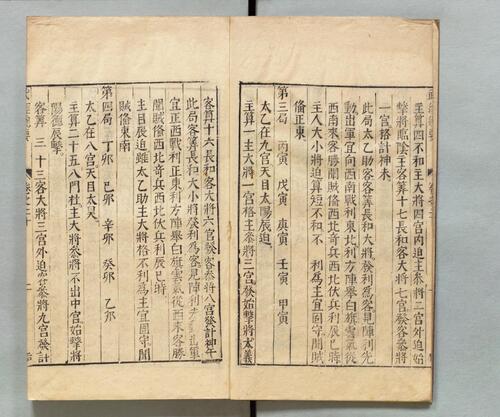 主算四不和主大將四宮內迫主參將二宮外迫始
擊將臨陰主客算十七長和客大將七宮發客參將
一宮格計神未
此局太乙助客客算長和大將發利為客見陣利先
動出軍宜向西南戰利東北利方陣舉白旗雲氣從
西南來客勝聞賊備西北奇兵西北伏兵利辰巳時
主人大小將迫算短不和不利為主宜固守聞賊
備正東
第三局 丙寅 戊寅 庚寅 壬寅 甲寅
太乙在九宮天目太陽辰迫
主算一主大將一宮格主參將三宮發始擊將大義
客算十六長和客大將六宮發客參將八宮發計神午
此局客算長和大小將發利為客見陣利先動出軍
宜正西戰利正東利方陣舉白旗雲氣從西來客勝
聞賊備西北奇兵西北伏兵利辰巳時
主目辰迫雖太乙助主大將格不利為主宜固守聞
賊備東南
第四局 丁卯 己卯 辛卯 癸卯 乙卯
太乙在八宮天目太炅
主算二十五八門杜主大將參將不出中宮始擊將
陽德辰擊
客算三十三客大將三宮外迫客參將九宮發計